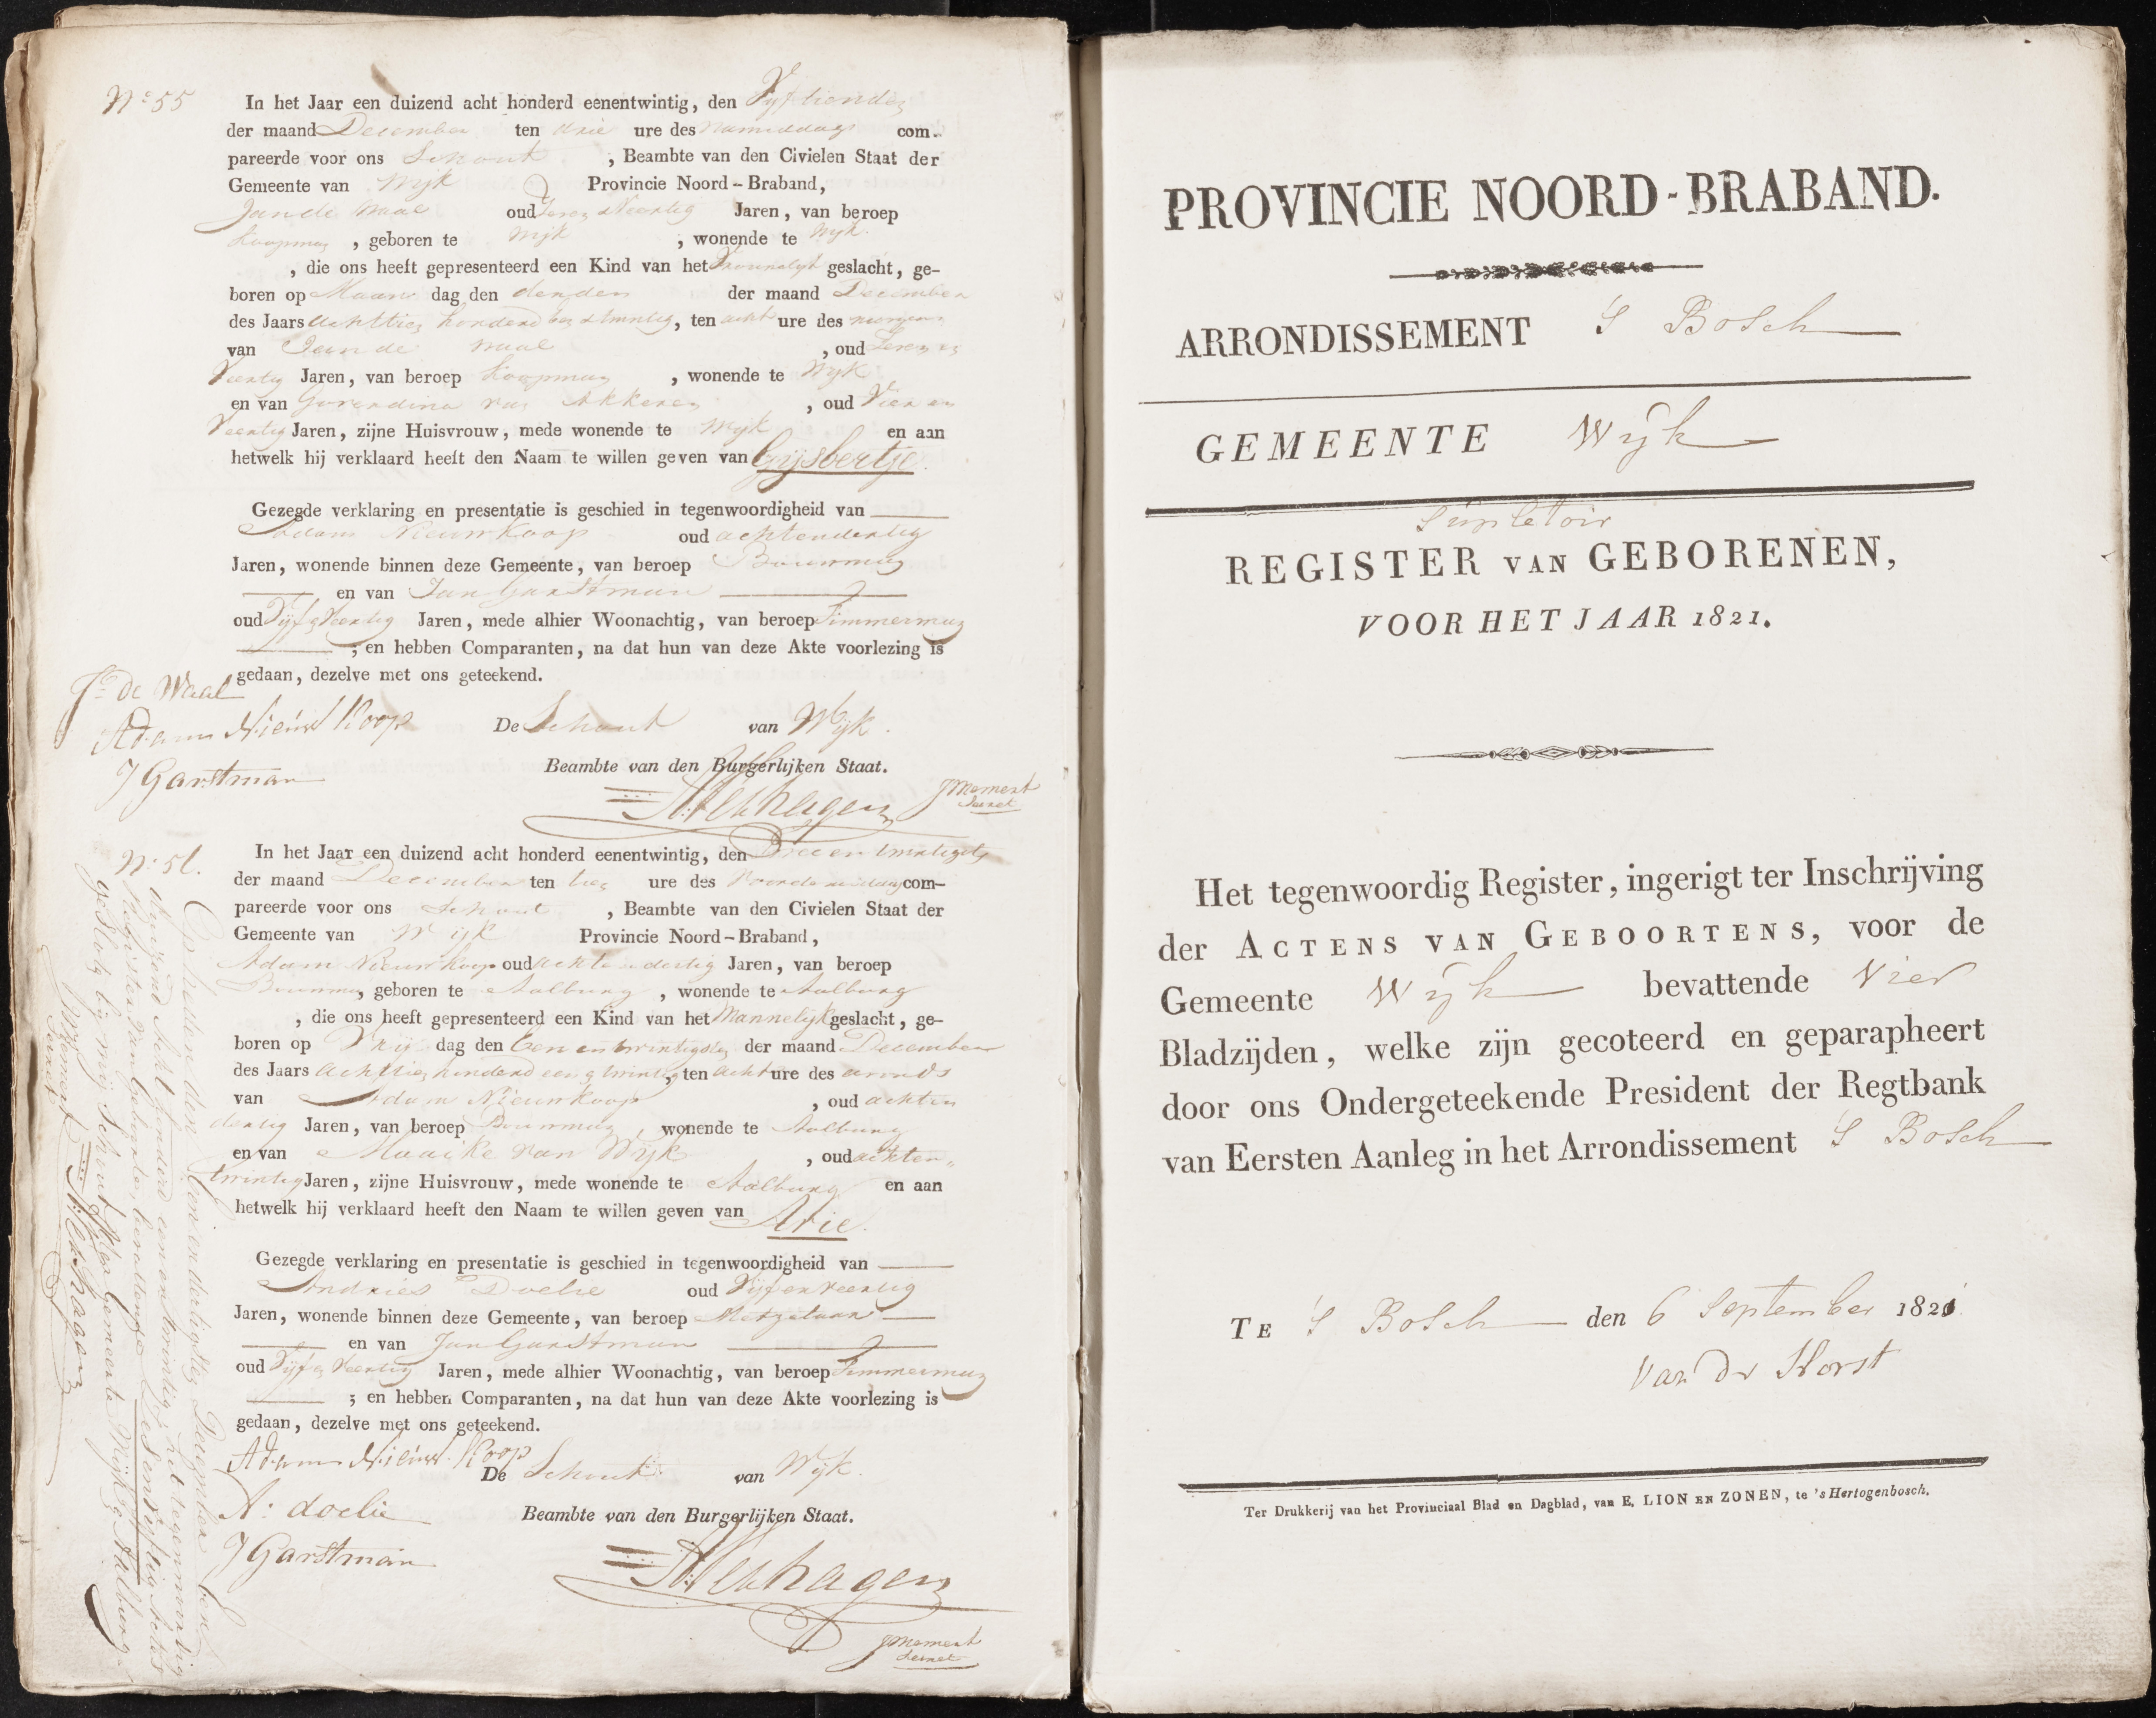 Nº 55
In het Jaar een duizend acht honderd eenentwintig, den Vijftienden
der maand December ten drie ure des namiddags com-
pareerde voor ons Schout , Beambte van den Civielen Staat der
Gemeente van Wijk Provincie Noord-Braband,
Jan de Waal oud Zeven en Veertig Jaren, van beroep
Koopman , geboren te Wijk , wonende te Wijk
, die ons heeft gepresenteerd een Kind van het Vrouwelijk geslacht, ge-
boren op Maan dag den derden der maand December
des Jaars achttien honderd een en twintig, ten acht ure des morgens
van Jan de Waal , oud Zeven en
Veertig Jaren, van beroep Koopman , wonende te Wijk
en van van Akkeren , oud Vier en
Veertig Jaren, zijne Huisvrouw, mede wonende te Wijk en aan
hetwelk hij verklaard heeft den Naam te willen geven van Gijsbertje.
Gezegde verklaring en presentatie is geschied in tegenwoordigheid van
Adam Nieuwkoop oud achtendertig
Jaren, wonende binnen deze Gemeente, van beroep Bouwman
en van Jan Garstman
oud Vijf en Veertig Jaren, mede alhier Woonachtig, van beroep Timmerman
; en hebben Comparanten, na dat hun van deze Akte voorlezing is
gedaan, dezelve met ons geteekend.
Jn de Waal
Adam Nieuw Koop De Schout van Wijk.
J Garstman Beambte van den Burgerlijken Staat.
Nº 56.
In het Jaar een duizend acht honderd eenentwintig, den Drie en twintigste
der maand December ten tien ure des Voorde middag com-
pareerde voor ons Schout , Beambte van den Civielen Staat der
Gemeente van Wijk Provincie Noord-Braband,
Adam Nieuwkoop oud achtendertig Jaren, van beroep
Bouwman, geboren te Aalburg , wonende te Aalburg
, die ons heeft gepresenteerd een Kind van het Mannelijk geslacht, ge-
boren op Vrij dag den Een en twintigsten der maand December
des Jaars achttien honderd een en twintig, ten acht ure des avonds
van Adam Nieuwkoop , oud achten
dertig Jaren, van beroep Bouwman, wonende te Aalburg
en van Maaike van Wijk , oud achten
twintig Jaren, zijne Huisvrouw, mede wonende te Aalburg en aan
hetwelk hij verklaard heeft den Naam te willen geven van Arie.
Gezegde verklaring en presentatie is geschied in tegenwoordigheid van
Andries Doelie oud Vijf en Veertig
Jaren, wonende binnen deze Gemeente, van beroep Metzelaar
en van Jan Garstman
oud Vijf en Veertig Jaren, mede alhier Woonachtig, van beroep Timmerman
; en hebben Comparanten, na dat hun van deze Akte voorlezing is
gedaan, dezelve met ons geteekend.
Adam Nieuw Koop
De Schout van Wijk.
A: doelie Beambte van den Burgerlijken Staat.
J Garstman
Op heden den Een en dertigsten December een
duizend acht honderd een en twintig, het tegenwoordig
Register van Geboorte, bevattende Zes en vijftig Actes
gesloten bij mij Schout der gemeente Wijk en Aalburg
PROVINCIE NOORD-BRABAND.
ARRONDISSEMENT 'S Bosch
GEMEENTE Wijk
Supletoir
REGISTER VAN GEBORENEN,
VOOR HET JAAR 1821.
Het tegenwoordig Register, ingerigt ter Inschrijving
der ACTENS VAN GEBOORTENS, voor de
Gemeente Wijk bevattende Vier
Bladzijden, welke zijn gecoteerd en geparapheert
door ons Ondergeteekende President der Regtbank
van Eersten Aanleg in het Arrondissement 'S Bosch
TE 'S Bosch den 6 September 1821
Van der Horst
Ter Drukkerij van het Provinciaal Blad en Dagblad, van E. LION EN ZONEN, te 's Hertogenbosch.